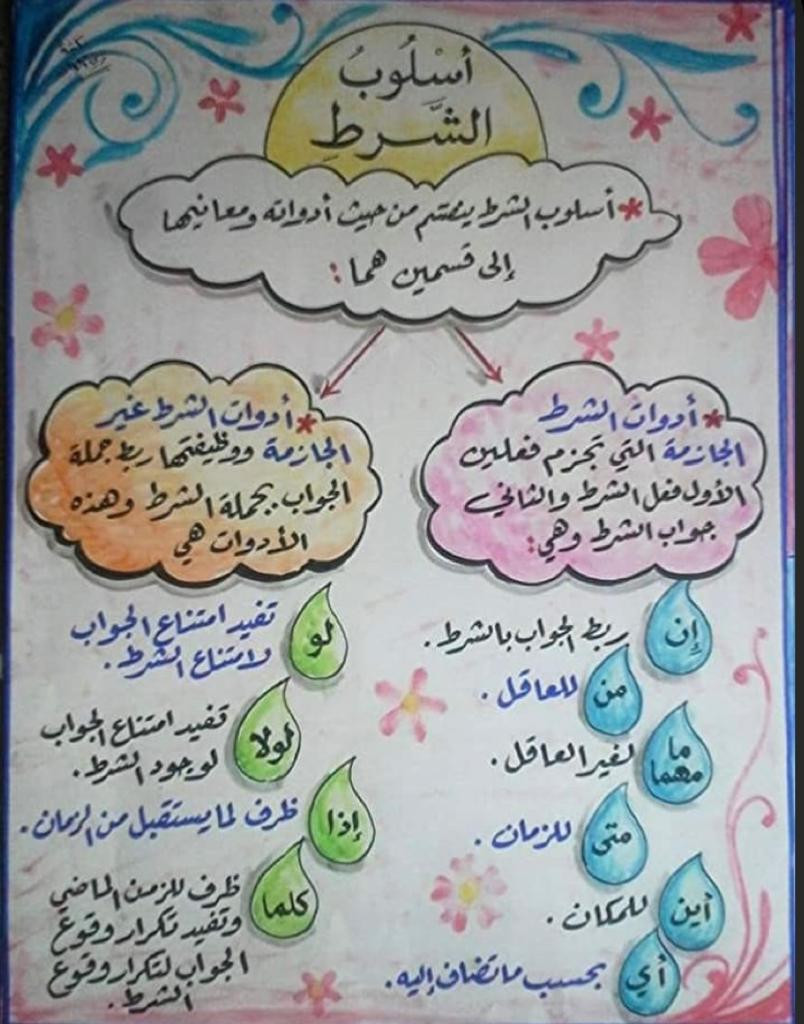 أسْلُوبُ
الشَّرطِ
* أسلوب الشرط ينقسم من حيث أدواته ومعانيها
إلى قسمين هما :
* أدوات الشرط
الجازمة التي تجزم فعلين
الأول فعل الشرط والثاني
جواب الشرط وهي :
إن ربط الجواب بالشرط .
من للعاقل .
ما
مهما لغير العاقل .
متى للزمان .
أين للمكان .
أي بحسب ما تضاف إليه .
* أدوات الشرط غير
الجازمة ووظيفتها ربط جملة
الجواب بجملة الشرط وهذه
الأدوات هي
لو تفيد امتناع الجواب
لامتناع الشرط .
لولا تفيد امتناع الجواب
لوجود الشرط .
إذا ظرف لما يستقبل من الزمان .
كلما ظرف للزمن الماضي
وتفيد تكرار وقوع
الجواب لتكرار وقوع
الشرط .